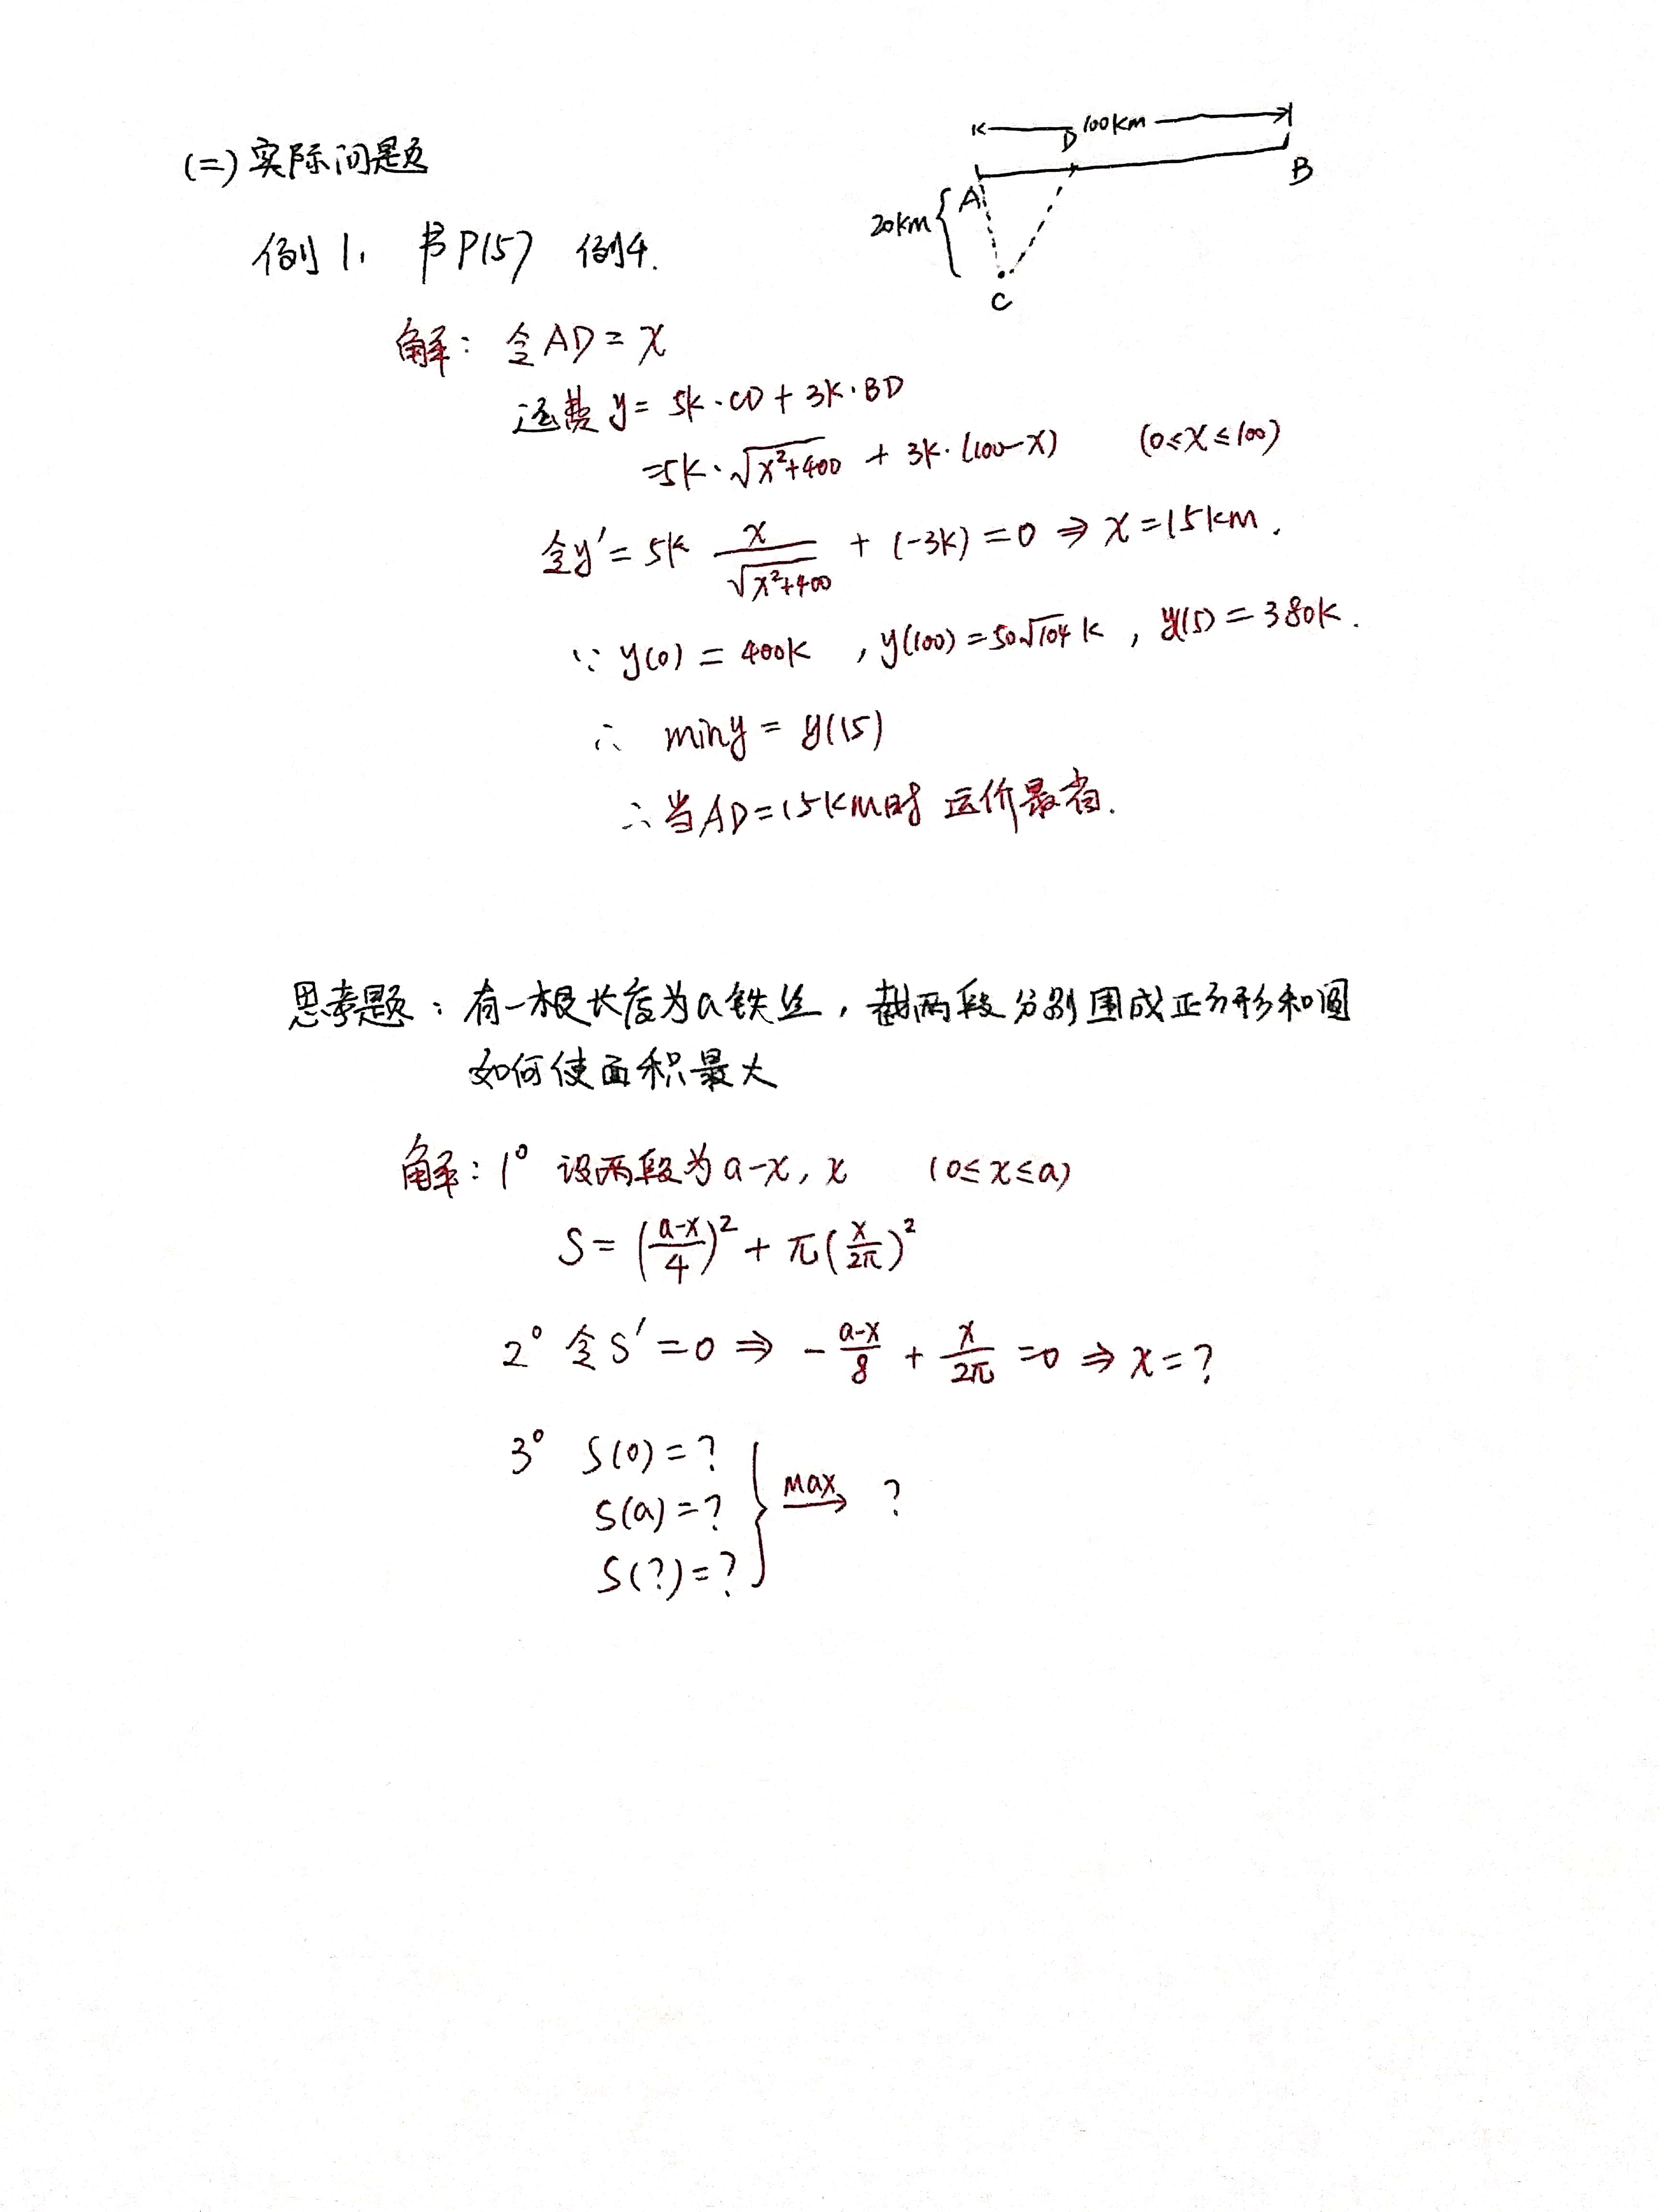 (二) 实际问题
K 100km
D
A
B
20km
C
例1. 书P157 例4.
解: 令AD=x
运费y=5k·CD+3k·BD
=5k·√(x²+400) + 3k·(100-x) (0≤x≤100)
令y′=5k x/√(x²+400) + (-3k)=0 ⇒ x=15km.
∵ y(0)=400k , y(100)=50√104 k , y(15)=380k.
∴ miny = y(15)
∴ 当AD=15km时 运价最省.
思考题: 有一根长度为a铁丝, 截两段分别围成正方形和圆
如何使面积最大
解: 1° 设两段为a-x, x (0≤x≤a)
S=((a-x)/4)²+π(x/2π)²
2° 令S′=0 ⇒ -(a-x)/8 + x/2π =0 ⇒ x=?
3° S(0)=?
S(a)=?
max → ?
S(?)=?